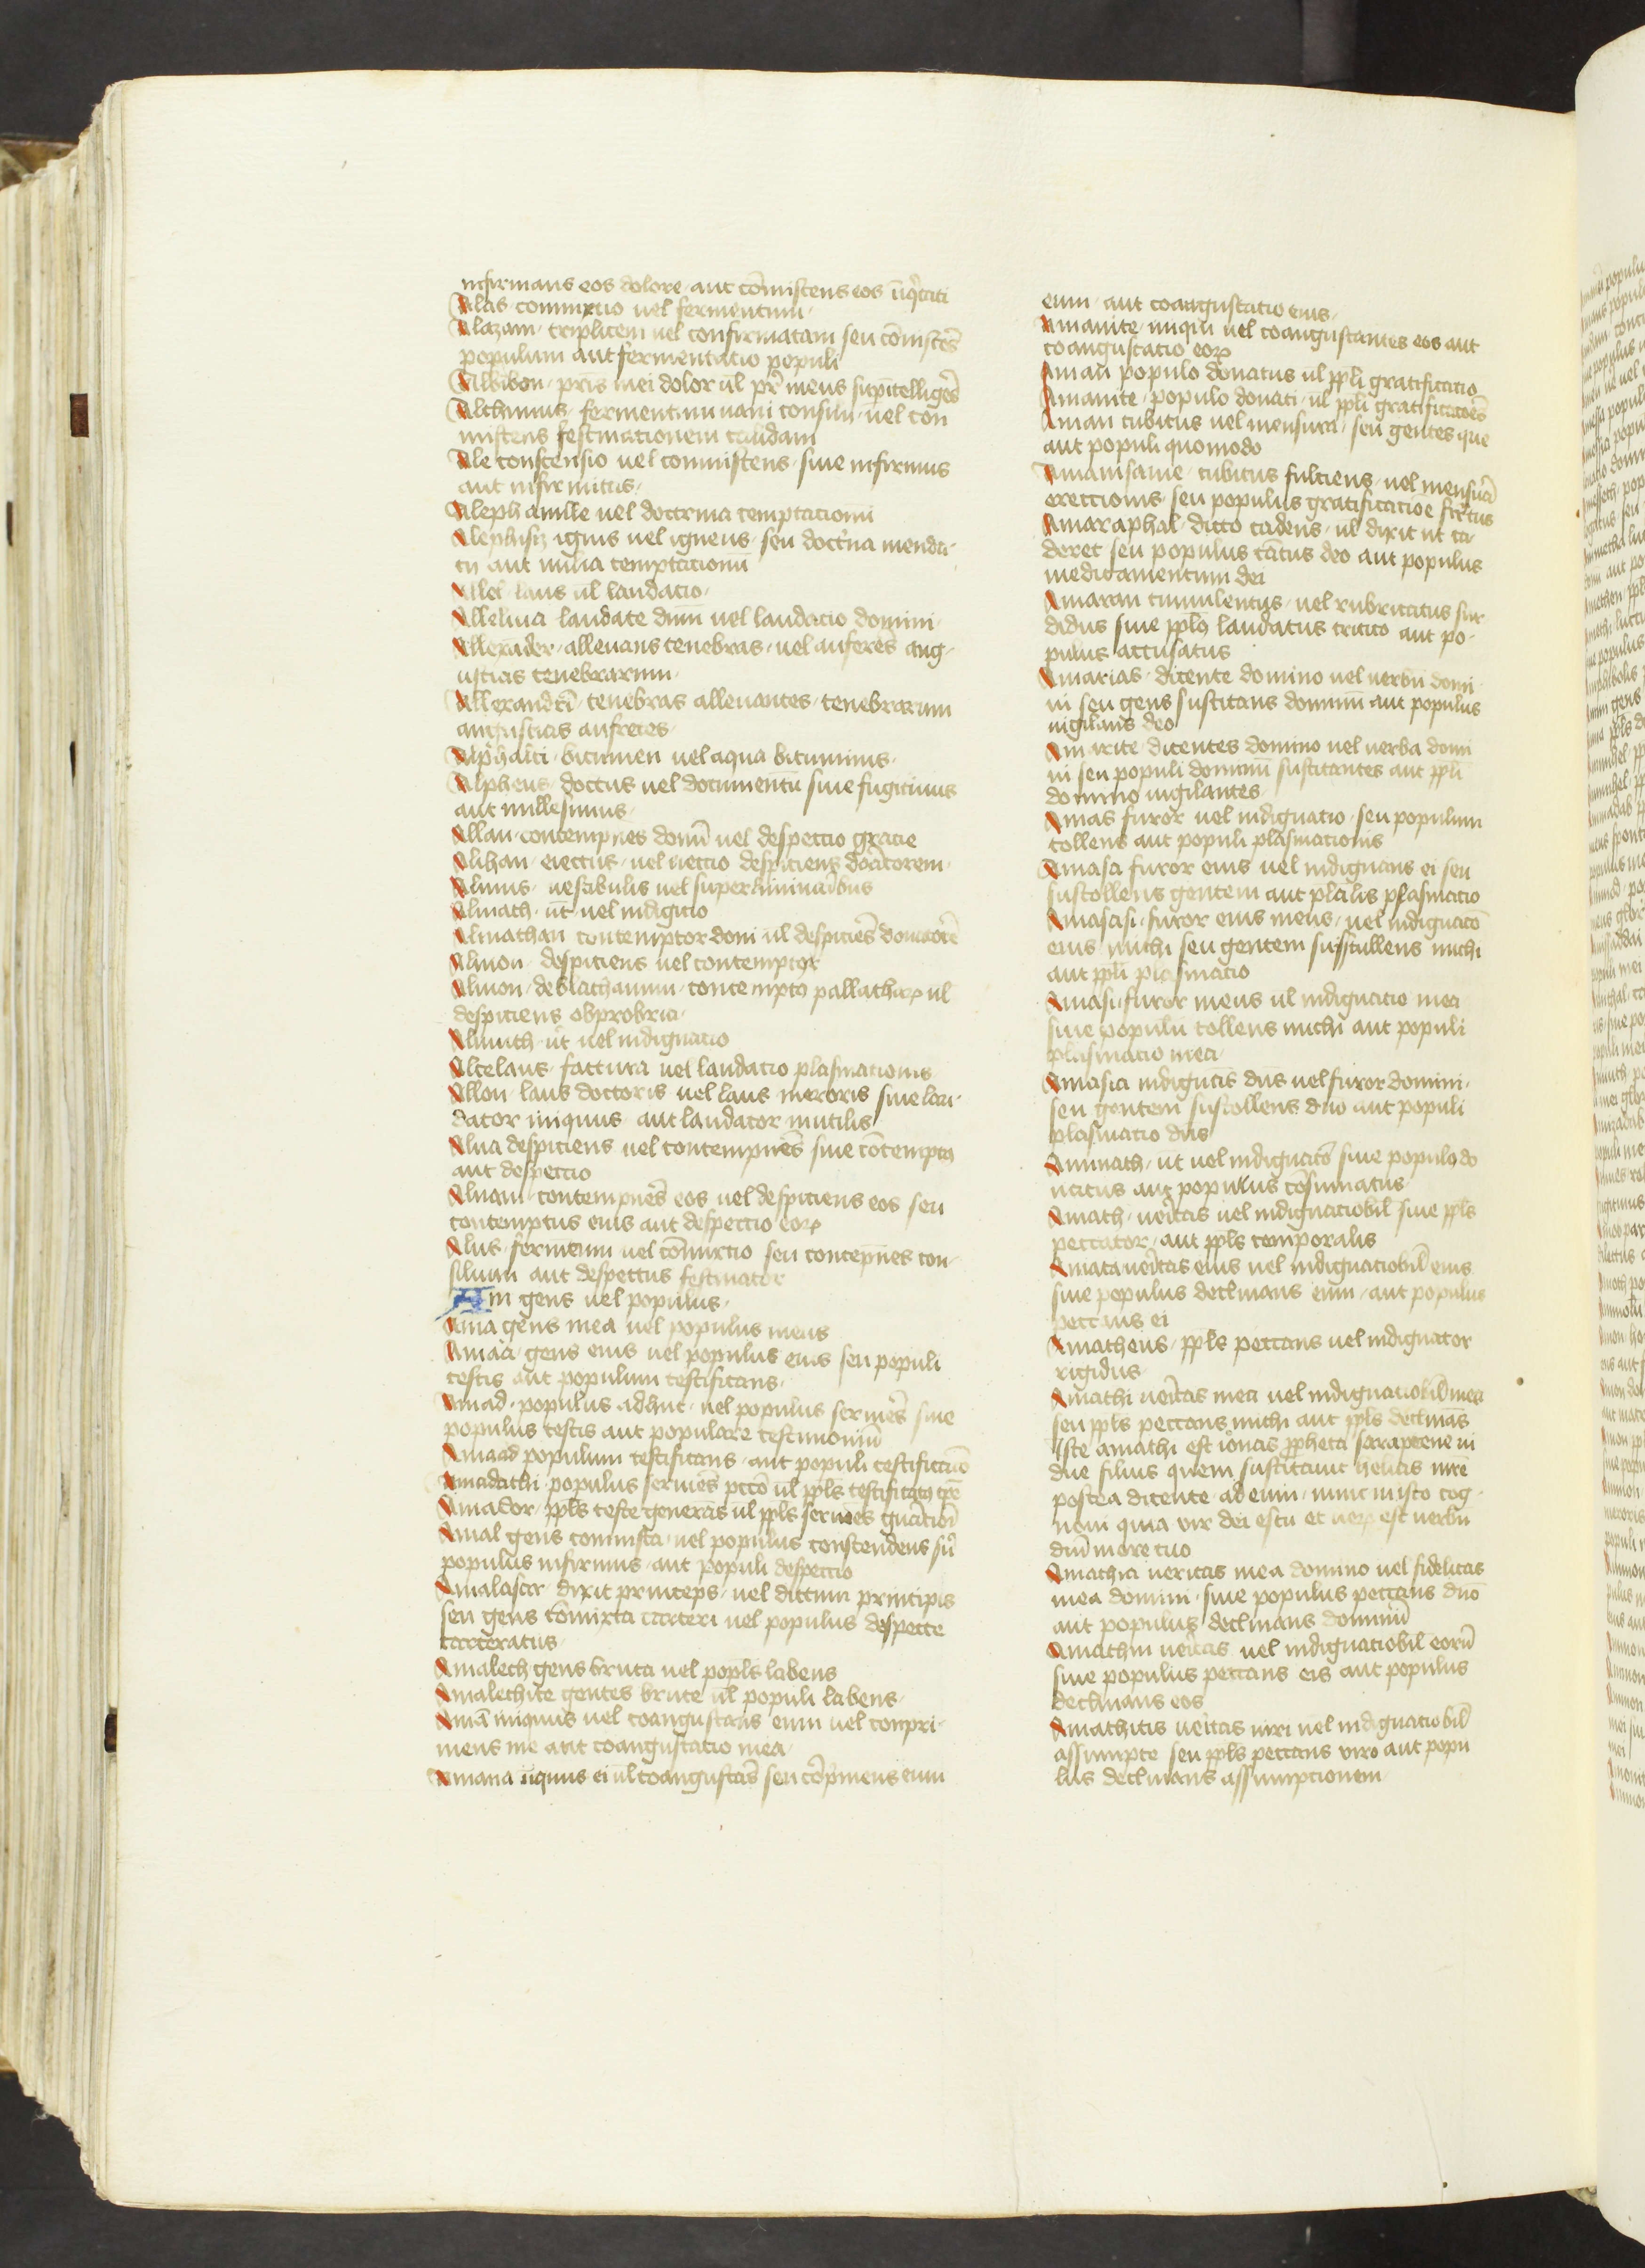 infirmans eos dolore · aut cōmiscens eos
Alas · commixtio uel fermentum ·
Alazam · triplicem uel confirmatam seu cōmiscēs
populum aut fermentatio populi
Albibon · pris mei dolor ul pr meus
Alchimus · fermentum uani consilii · uel con
miscens festinationem calidam
Ale conscensio uel commiscens · siue infirmus
aut infirmitas ·
Aleph a mille uel doctrina temptacionū
Alephisiz ignis uel igneus · seu doctna menda·
cij aut milia temptacionū
Allel · laus ul laudacio ·
Alleluia laudate dnm̄ uel laudacio domini ·
Allexāder · alleuans tenebras · uel auferēs ang·
ustias tenebrarum ·
Allexandri · tenebras alleuantes · tenebrarum
angustias aufretes ·
Alphalti · bitumen uel aqua bituminis ·
Alpheus · doctus uel documentū siue fugitiuus
aut millesimus ·
Allan · contempnes donū uel despectio gracie
Alihan · eiectus · uel iectio despiciens donatorem ·
Alimis · uestibulis uel superliminaribus
Almath · ūt uel indignatio
Almathan contemptor doni ul despiciēs donatorē
Almon · despiciens uel contemptor
Almon · deblathaimm · contempto pallathaꝝ ul
despiciens obprobria ·
Alimith · ut uel indignatio
Altelaus · factura uel laudacio plasmationis ·
Allon · laus doctoris uel laus meroris siue lau·
dator iniquus aut laudator inutilis
Alua despiciens uel contempnēs siue cōtemptꝯ
aut despectio
Aluam · contempnēs eos uel despiciens eos seu
contemptus eius aut despectio eoꝝ
Alus · fermētum uel cōmixtio seu contēpnes con·
silium aut despectus festinator
Am gens uel populus ·
Ama gens mea uel populus meus
Amaa · gens eius uel populus eius seu populi
testis aut populum testificans ·
Amad · populus adhuc · uel populus seruiēs siue
populus testis aut populare testimoniū
Amaad populum testificans · aut populi testificacio
Amadathi · populus seruiēs pctō ul ppls
Amador · ppls teste generās ul ppls seruiēs gnationi
Amal gens commista · uel populus conscendens siū
populus infirmus · aut populi despectio
Amalasar · dixit princeps · uel dictum principis
seu gens cōmixta carceri uel populus despecte
carceratus ·
Amalech gens bruta uel popls labens
Amalechite gentes brute ul populi labens ·
Amā iniquus uel coangustans eum uel conpri·
mens me aut coangustatio mea ·
Amana iiquus ei ul coangustās seu cōpmens eum
eum · aut coangustatio eius ·
Amanite · iniqui uel coangustantes eos aut
coangustatio eoꝝ
Aman populo donatus ul ppli gratificatio
Amanite · populo donati · ul ppli gratificatoēs
Aman cubitus uel mensura · seu gentes que
aut populi quomodo
Amanisaue · cubitus fulciens · uel mensura
erectionis · seu populus gratificatiōe firtus
Amaraphal · dicto cadens · ul dixit ut ca·
deret seu populus cātus deo aut populus
medicamentum dei
Amaran timulentus · uel rubricatus sur·
didus siue pplꝯ laudatus critico aut po·
pulus accusatus
Amarias · dicente domino uel uerbū domi·
ni seu gens suscitans dominū aut populus
uigilans deo
Amarite · dicentes domino uel uerba domi
ni seu populi dominū suscitantes aut ppli
domino uigilantes ·
Amas furor uel indignatio · seu populum
tollens aut populi plasmationis
Amasa furor eius uel indignans ei seu
suscollens gentem aut plalis plasmatio
Amasasi · furor eius meus · uel indignatō
eius michi seu gentem sustullens michi
aut ppli plasmatio
Amasi · furor meus ul indignatio mea
siue populū tollens michi aut populi
plasmatio mea ·
Amasia indignās dn̄s uel furor domini ·
seu gentem sustollens dn̄o aut populi
plasmatio dn̄s
Amnath · ūt uel indignatō siue populꝯ do
natus aut populus cōsumatus
Amath · ueritas uel indignatiobil siue ppls
peccator · aut ppls temporalis
Amata ueritas eius uel indignatiobil eius
siue populus declinans eum · aut populus
peccans ei
Amatheus · ppls peccans uel indignator
rigidus ·
Amathi ueritas mea uel indignatiobil mea
seu ppls peccans michi aut ppls declinās
Iste amathi est ionas ppheta sarraptene ui
due filius quem suscitauit helias mr̄e
postea dicente ad eum · nunc in isto cog·
noui quia uir dei es tu et ueꝝ est uerbū
dn̄i in ore tuo
Amathia ueritas mea domino uel fidelitas
mea domini · siue populus peccans dn̄o
aut populus declinans dominū
Amathim ueritas uel indignatiobil eorū
siue populus peccans eis aut populus
declinans eos
Amathitis ueritas uiri uel indignatiobil
assumpte seu ppls peccans viro aut popu
lus declinans assumptionem